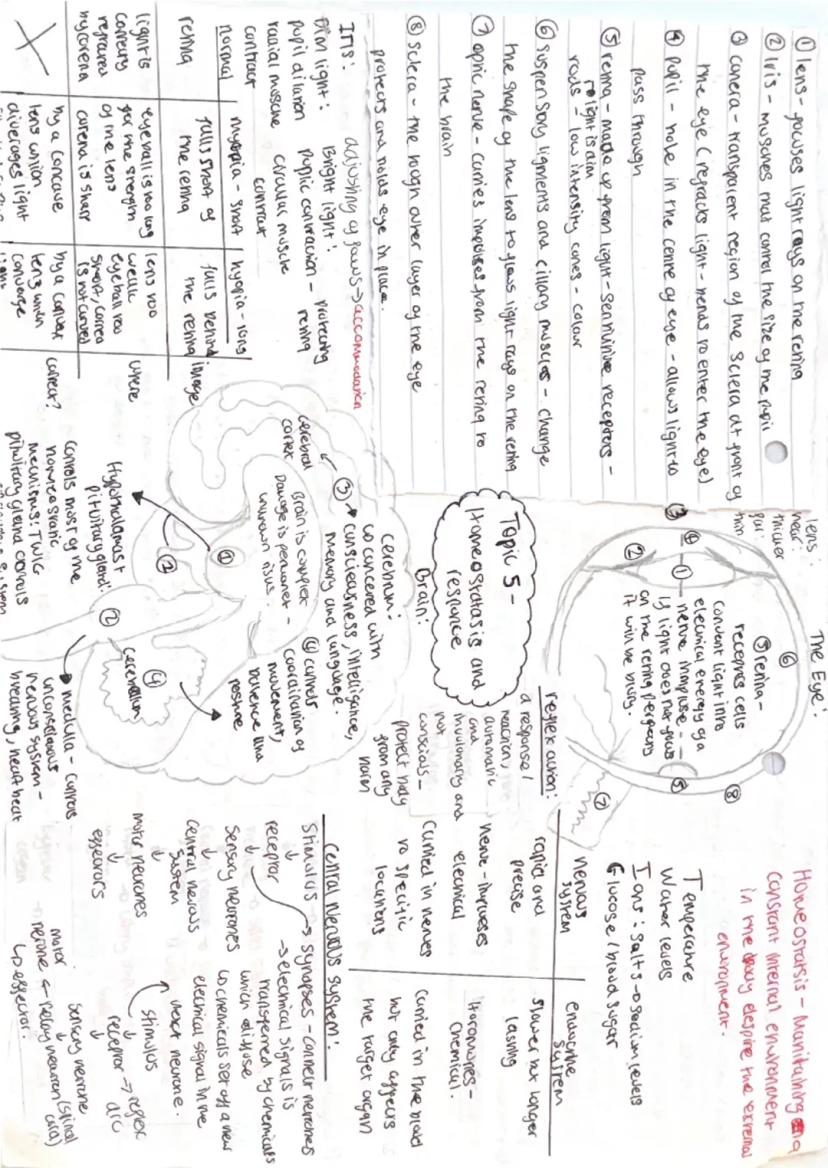 ① lens - focuses light rays on the retina
② Iris - muscles that control the size of the pupil
③ conera - transparent region of the sclera at front of
the eye (refracts light - bends to enter the eye)
④ pupil - hole in the centre of eye - allows light to
pass through
⑤ retina - made up from light-sensitive receptors -
light is dim
rods - low intensity cones - colour
⑥ suspensory ligments and cillary muscles - change
the shape of the lens to focus light rays on the retina
⑦ optic nerve - carries impulses from the retina to
the brain
⑧ sclera - the tough outer layer of the eye
protects and holds eye in place.
adjusting of focus → accommodation
Dim light:
pupil dilation
radial muscle
contract
Bright light:
Pupil contraction - protecting
retina
circular muscle
contract
normal
myopia - short
hyopia - long
retina
falls short of
the retina
falls behind
the retina
image
light is
refracted
by corena
eye ball is too long
for the strength
of the lens
corena is sharp
lens too
weak
eyeball too
short/ correa
is not curved
where
by a concave
lens which
diverages light
by a convex
lens which
converge
light
correct?
The Eye:
lens:
near:
thicker
far:
thin
⑥
⑤ retina -
receptors cells
convert light into
electrical energy of a
nerve impulse -
if light does not focus
on the retina perfectly
it will be blurry.
③
④
②
①
⑤
⑧
⑦
Topic 5 -
Homeostatasis and
response
Brain:
cerebrum:
↳ concered with
③ → consciousness, intelligence,
memory and language.
cerebral
cortex
Brain is complex
Damage is permanet -
unknown risks.
④ controls
coordination of
movement,
balence and
posture
①
①
②
④
cerebellum
Hypothallamas +
pituitary gland:
controls most of the
homeostatic
mecanisms: TWIG
pituitary gland controls
→ medulla - controls
unconscious
nervous system -
breathing, heart beat
Homeostatsis - Manitaining a
constant internal environment
in the body despite the external
environment.
Temperature
Water levels
Ions: salts → sodium levels
Glucose / blood sugar
reflex action:
a response /
reaction,
automatic
and
involonary and
not
conscious -
protect body
from any
harm
nervous
system
endocrine
system
rapid and
precise
slower but longer
lasting
nerve - impulses
electrical
Hormones -
chemical.
carried in nerves
to specific
locations
carried in the blood
but only affects
the target organ
central nervous system:
Stimulus
↓
receptor
↓
sensory neurones
↓
central nervous
system
↓
motor neurones
↓
effectors
→ synapses - connect neurones
→ electrical signals is
transferred by chemicals
which diffuse
↳ chemicals set of a new
electrical signal in the
next neurone.
stimulus
↓
receptor → reflex
arc
↓
sensory neurone
↓
motor
neurone ← relay neuron (spinal
cord)
↳ effector.